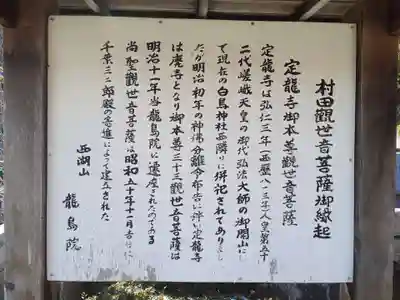 村田観世音菩薩御縁起
定龍寺御本尊観世音菩薩
定龍寺は弘仁三年(西暦八一三年)人皇第五十
二代嵯峨天皇の御代弘法大師の御開山に
て現在の白鳥神社西隣りに併祀されてありまし
たが明治初年の神佛分離令布告に伴い定龍寺
は廃寺となり御本尊三十三観世音菩薩は
明治十一年当龍島院に遷座されたのである
尚聖観世音菩薩は昭和五十年十一月吉日に
千葉三郎殿の寄進によって建立された
西湖山
龍島院